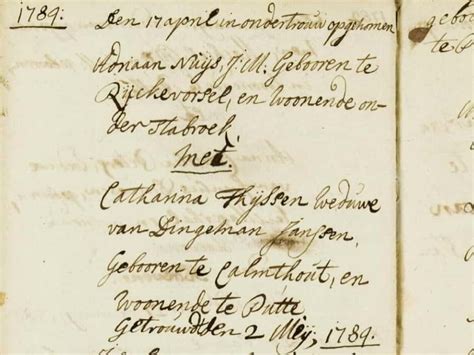 1789.
Den 17 april in ondertrouw opgenomen
Adriaan Nuijs, J:M: Gebooren te
Rijckevorsel, en Woonende on-
der Stabroek,
met.
Catharina Thijssen Weduwe
van Dingeman Janssen,
Gebooren te Calmthout, en
Woonende te Putte
Getrouwd den 2 Meij, 1789.